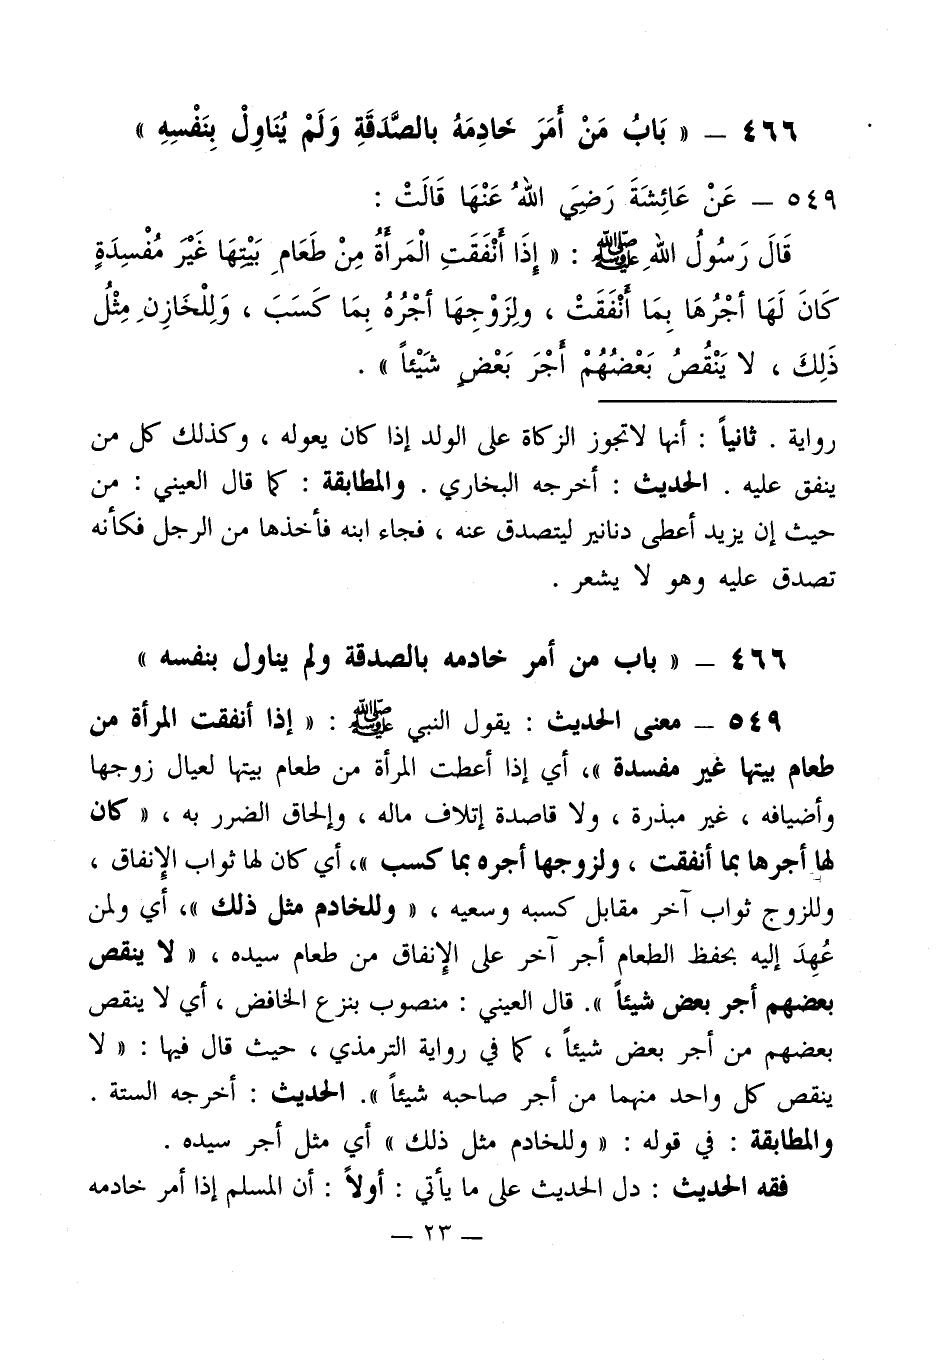 ٤٦٦ – « بَابُ مَنْ أَمَرَ خَادِمَهُ بالصَّدَقَةِ وَلَمْ يُنَاوِلْ بِنَفْسِهِ »
٥٤٩ – عَنْ عَائِشَةَ رَضِيَ اللهُ عَنْهَا قَالَتْ :
قَالَ رَسُولُ اللهِ ﷺ : « إِذَا أَنْفَقَتِ الْمَرأَةُ مِنْ طَعَامِ بَيْتِهَا غَيْرَ مُفْسِدَةٍ
كَانَ لَهَا أجْرُهَا بِمَا أَنْفَقَتْ ، ولِزَوْجِهَا أجْرُهُ بِمَا كَسَبَ ، وَلِلْخَازِنِ مِثْلُ
ذَلِكَ ، لا يَنْقُصُ بَعْضُهُمْ أَجْرَ بَعْضٍ شَيْئاً » .
رواية . ثانياً : أنها لاتجوز الزكاة على الولد إذا كان يعوله ، وكذلك كل من
ينفق عليه . الحديث : أخرجه البخاري . والمطابقة : كما قال العيني : من
حيث إن يزيد أعطى دنانير ليتصدق عنه ، فجاء ابنه فأخذها من الرجل فكأنه
تصدق عليه وهو لا يشعر .
٤٦٦ – « باب من أمر خادمه بالصدقة ولم يناول بنفسه »
٥٤٩ – معنى الحديث : يقول النبي ﷺ : « إذا أنفقت المرأة من
طعام بيتها غير مفسدة »، أي إذا أعطت المرأة من طعام بيتها لعيال زوجها
وأضيافه ، غير مبذرة ، ولا قاصدة إتلاف ماله ، وإلحاق الضرر به ، « كان
لها أجرها بما أنفقت ، ولزوجها أجره بما كسب »، أي كان لها ثواب الإنفاق ،
وللزوج ثواب آخر مقابل كسبه وسعيه ، « وللخادم مثل ذلك »، أي ولمن
عُهِدَ إليه بحفظ الطعام أجر آخر على الإنفاق من طعام سيده ، « لا ينقص
بعضهم أجر بعض شيئاً ». قال العيني : منصوب بنزع الخافض ، أي لا ينقص
بعضهم من أجر بعض شيئاً ، كما في رواية الترمذي ، حيث قال فيها : « لا
ينقص كل واحد منهما من أجر صاحبه شيئاً ». الحديث : أخرجه الستة .
والمطابقة : في قوله : « وللخادم مثل ذلك » أي مثل أجر سيده .
فقه الحديث : دل الحديث على ما يأتي : أولاً : أن المسلم إذا أمر خادمه
– ٢٣ –